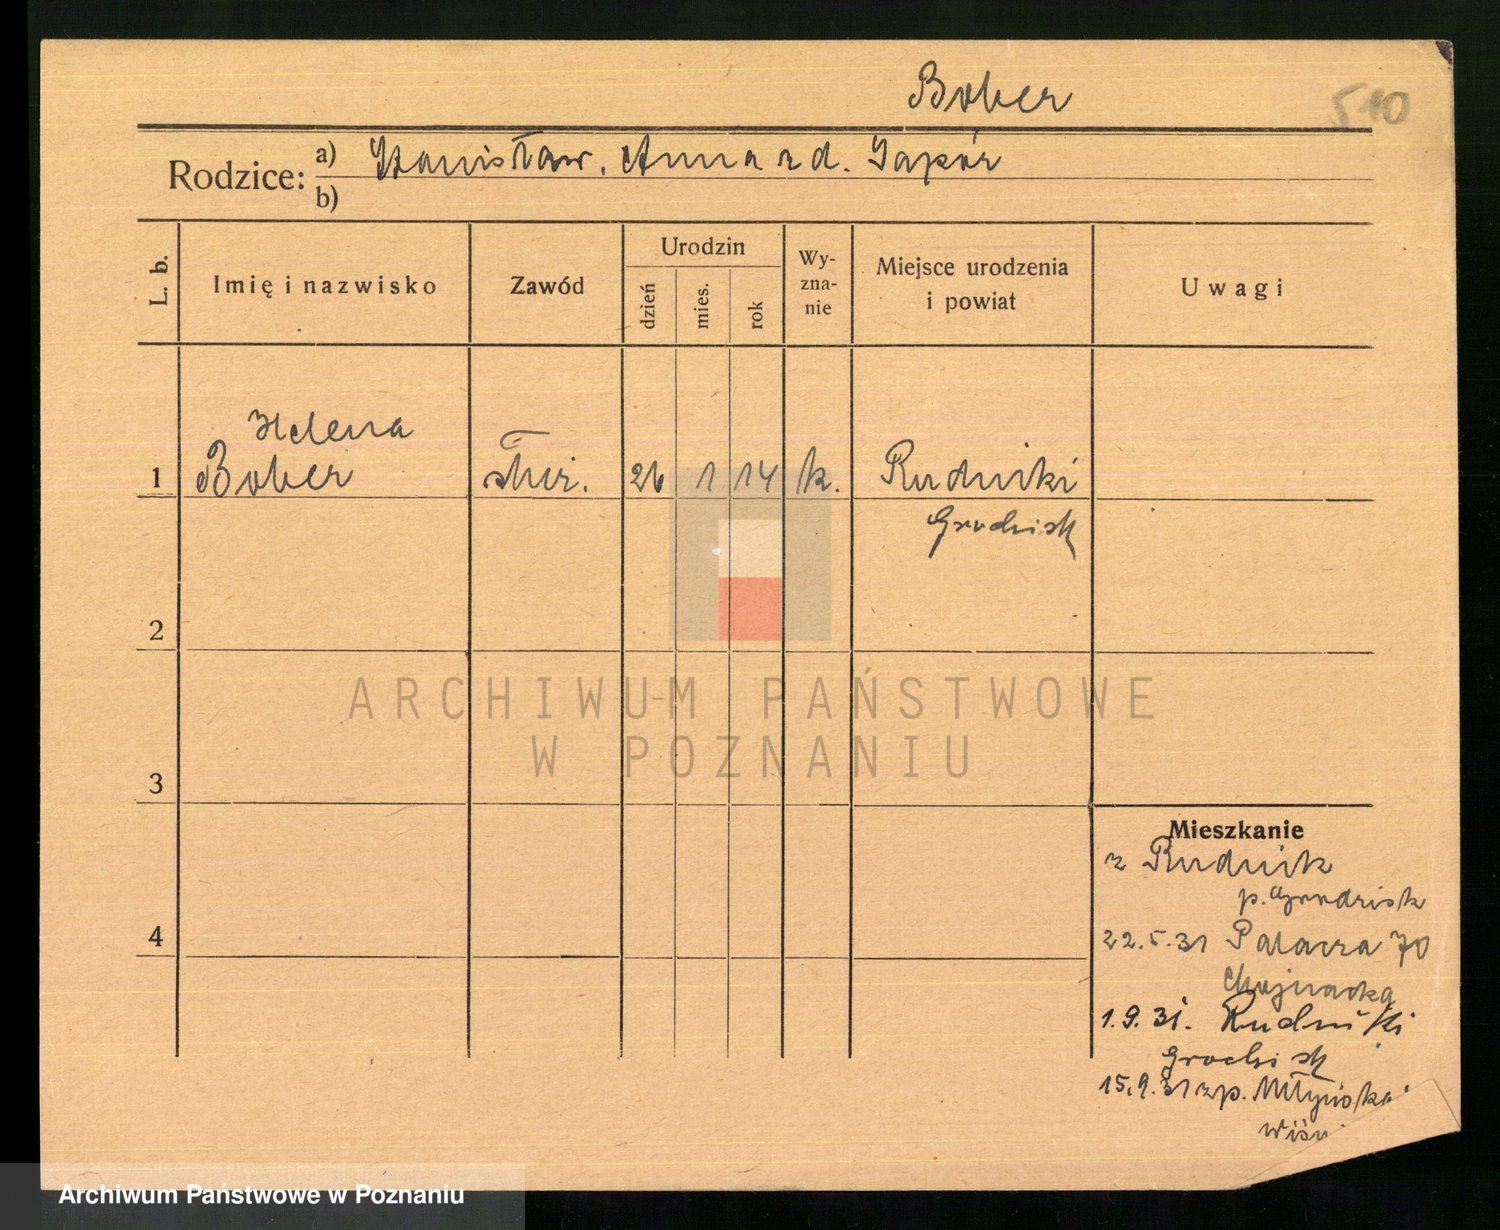 Bober
510
Rodzice: a) Stanisław, Anna zd. Gapór
b)
L. b.
Imię i nazwisko
Zawód
Urodzin
dzień
mies.
rok
Wy-
zna-
nie
Miejsce urodzenia
i powiat
Uwagi
Helena
1 Bober służ. 26 1 14 k. Rudniki
Grodzisk
2
ARCHIWUM PAŃSTWOWE
W POZNANIU
3
Mieszkanie
z Rudnik
p. Grodzisk
4
22.5.31 Palacza 70
Chojnacka
1.9.31. Rudniki
Grodzisk
15.9.31 zp.
Archiwum Państwowe w Poznaniu